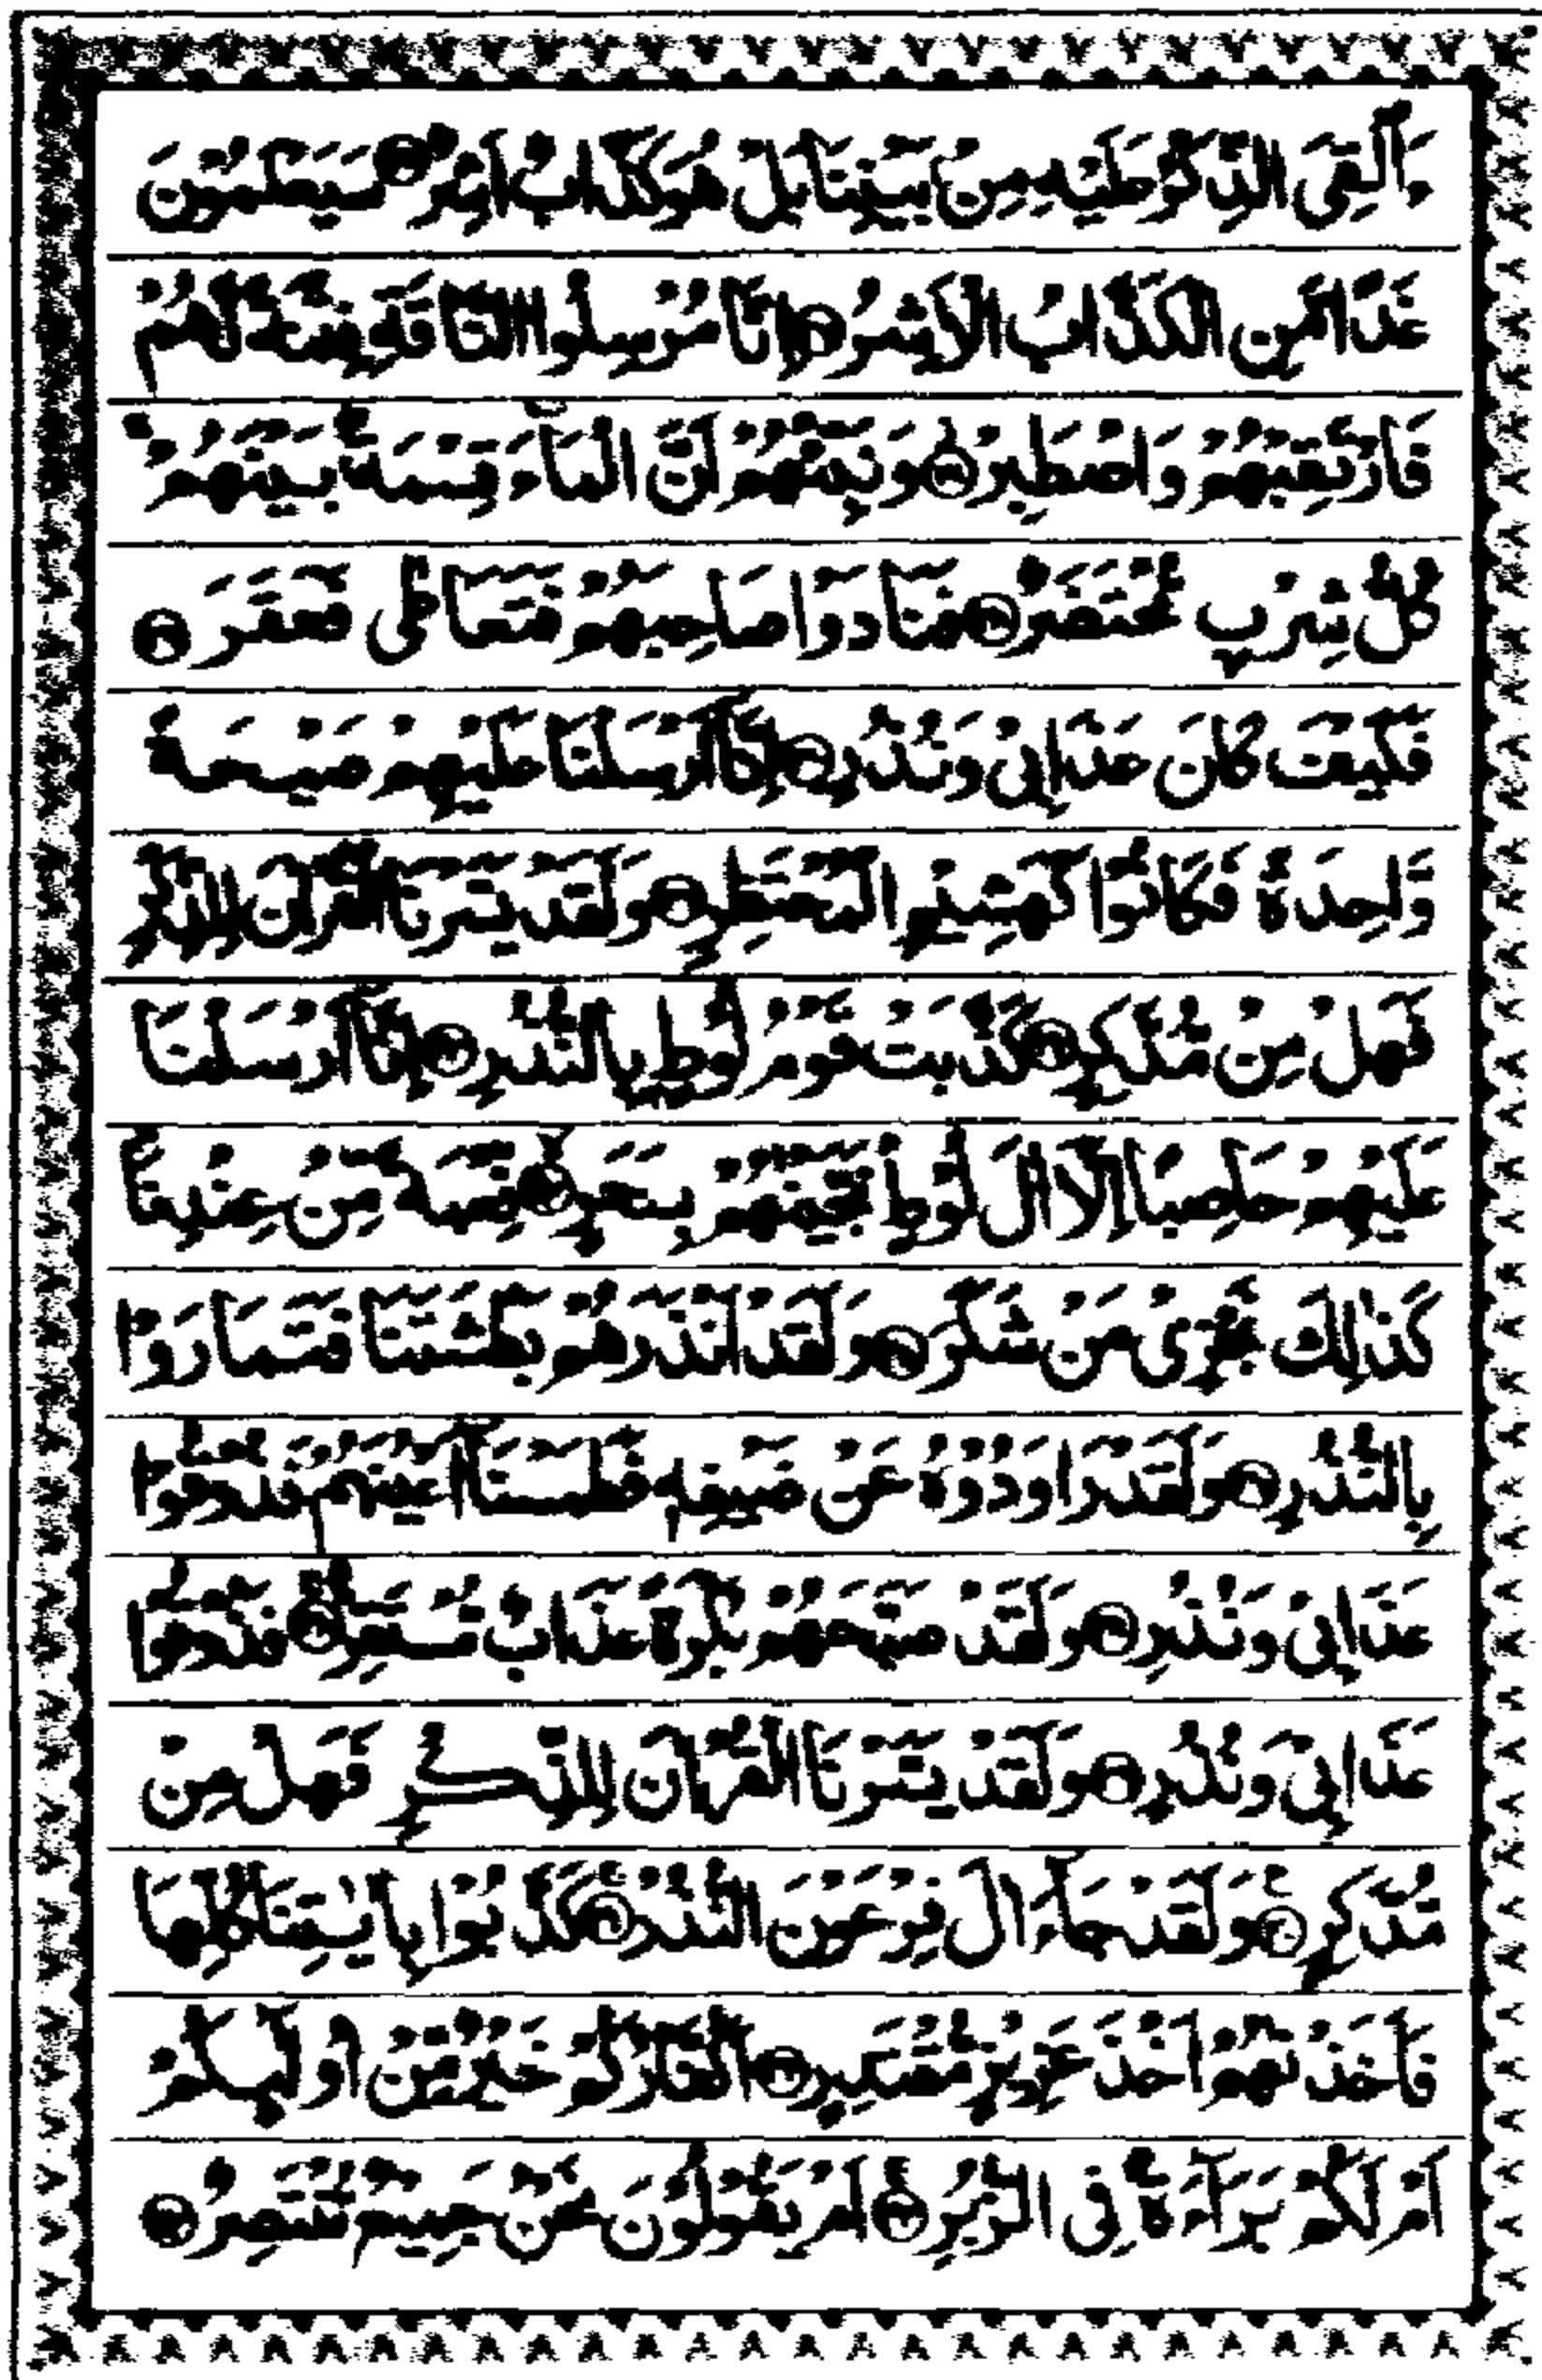 ءَاُلْقِيَ الذِّكْرُ عَلَيْهِ مِنْۢ بَيْنِنَا بَلْ هُوَ كَذَّابٌ اَشِرٌ ۝ سَيَعْلَمُوْنَ
غَدًا مَّنِ الْكَذَّابُ الْاَشِرُ ۝ اِنَّا مُرْسِلُوا النَّاقَةِ فِتْنَةً لَّهُمْ
فَارْتَقِبْهُمْ وَاصْطَبِرْ ۝ وَنَبِّئْهُمْ اَنَّ الْمَآءَ قِسْمَةٌۢ بَيْنَهُمْ ۚ
كُلُّ شِرْبٍ مُّحْتَضَرٌ ۝ فَنَادَوْا صَاحِبَهُمْ فَتَعَاطٰى فَعَقَرَ ۝
فَكَيْفَ كَانَ عَذَابِيْ وَنُذُرِ ۝ اِنَّآ اَرْسَلْنَا عَلَيْهِمْ صَيْحَةً
وَّاحِدَةً فَكَانُوْا كَهَشِيْمِ الْمُحْتَظِرِ ۝ وَلَقَدْ يَسَّرْنَا الْقُرْاٰنَ لِلذِّكْرِ
فَهَلْ مِنْ مُّدَّكِرٍ ۝ كَذَّبَتْ قَوْمُ لُوْطٍۭ بِالنُّذُرِ ۝ اِنَّآ اَرْسَلْنَا
عَلَيْهِمْ حَاصِبًا اِلَّآ اٰلَ لُوْطٍ ؕ نَجَّيْنٰهُمْ بِسَحَرٍ ۝ نِّعْمَةً مِّنْ عِنْدِنَا
كَذٰلِكَ نَجْزِيْ مَنْ شَكَرَ ۝ وَلَقَدْ اَنْذَرَهُمْ بَطْشَتَنَا فَتَمَارَوْا
بِالنُّذُرِ ۝ وَلَقَدْ رَاوَدُوْهُ عَنْ ضَيْفِهٖ فَطَمَسْنَآ اَعْيُنَهُمْ فَذُوْقُوْا
عَذَابِيْ وَنُذُرِ ۝ وَلَقَدْ صَبَّحَهُمْ بُكْرَةً عَذَابٌ مُّسْتَقِرٌّ ۝ فَذُوْقُوْا
عَذَابِيْ وَنُذُرِ ۝ وَلَقَدْ يَسَّرْنَا الْقُرْاٰنَ لِلذِّكْرِ فَهَلْ مِنْ
مُّدَّكِرٍ ۝ وَلَقَدْ جَآءَ اٰلَ فِرْعَوْنَ النُّذُرُ ۝ كَذَّبُوْا بِاٰيٰتِنَا كُلِّهَا
فَاَخَذْنٰهُمْ اَخْذَ عَزِيْزٍ مُّقْتَدِرٍ ۝ اَكُفَّارُكُمْ خَيْرٌ مِّنْ اُولٰٓئِكُمْ
اَمْ لَكُمْ بَرَآءَةٌ فِى الزُّبُرِ ۝ اَمْ يَقُوْلُوْنَ نَحْنُ جَمِيْعٌ مُّنْتَصِرٌ ۝